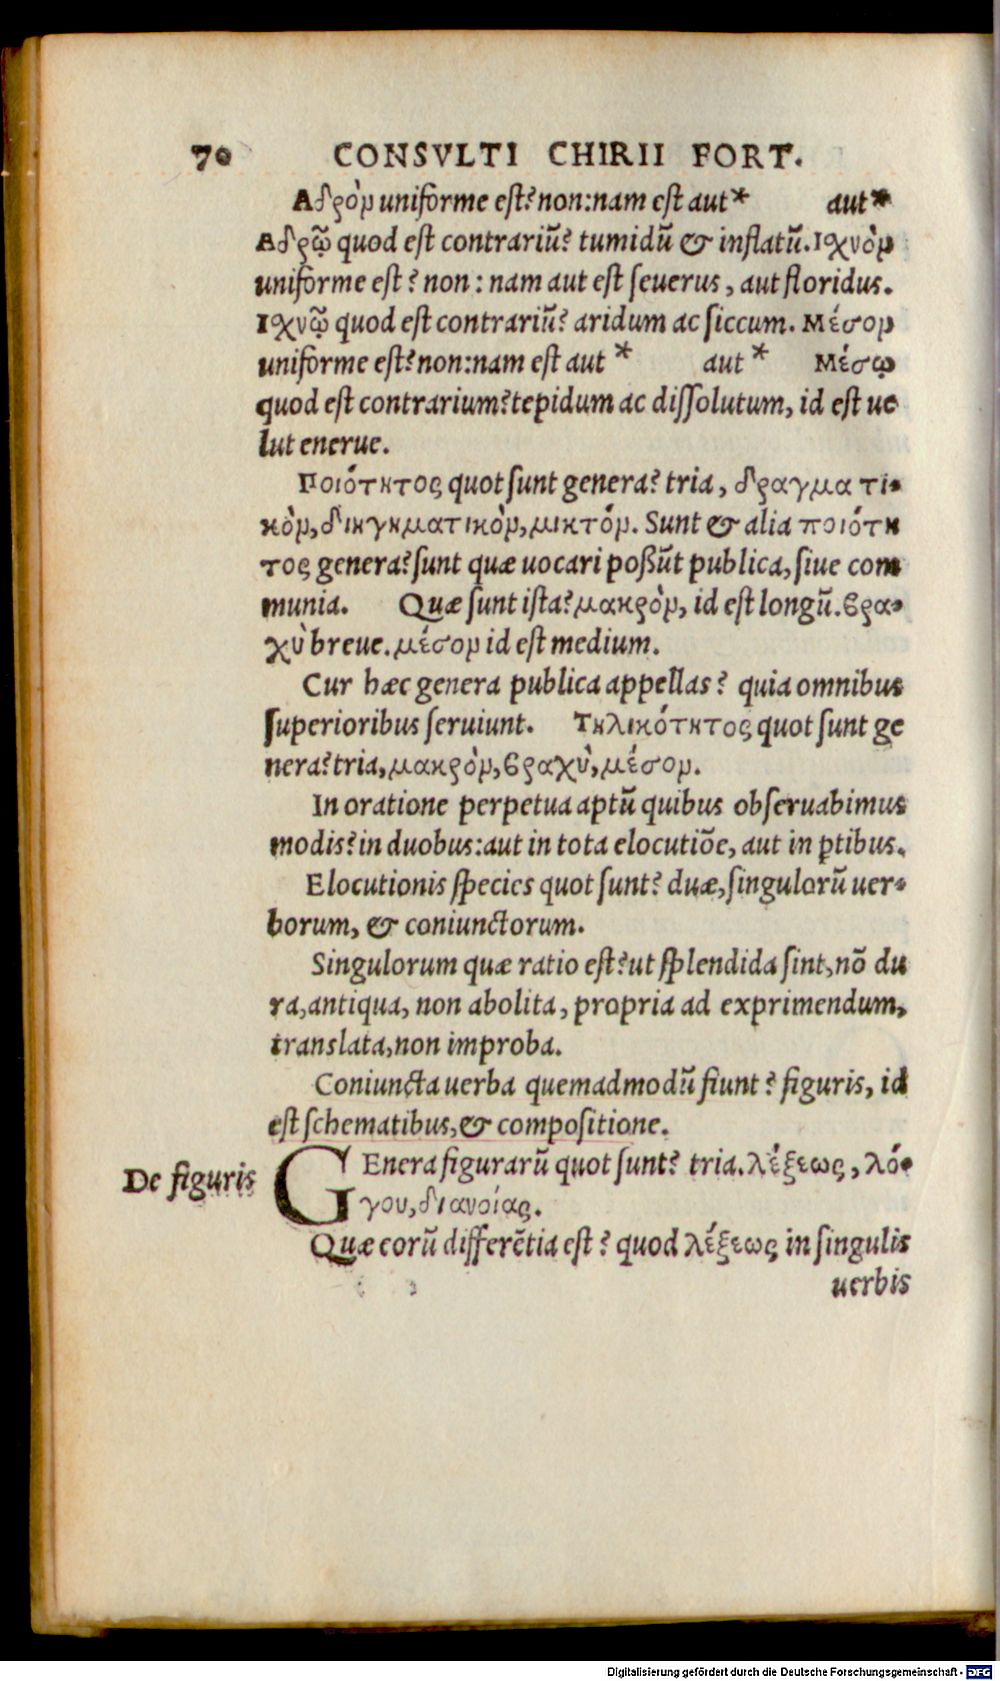 70 CONSVLTI CHIRII FORT.
Αδρὸν uniforme est? non: nam est aut * aut *
Αδρῷ quod est contrariũ? tumidũ & inflatũ. Ισχνὸν
uniforme est? non: nam aut est seuerus, aut floridus.
Ισχνῷ quod est contrariũ? aridum ac siccum. Μέσον
uniforme est? non: nam est aut * aut * Μέσῳ
quod est contrarium? tepidum ac dissolutum, id est ue
lut enerue.
Ποιότητος quot sunt genera? tria, δραγματι-
κὸν, διηγηματικὸν, μικτόν. Sunt & alia ποιότη
τος genera? sunt quæ uocari possũt publica, siue com
munia. Quæ sunt ista? μακρὸν, id est longũ. βρα-
χὺ breue. μέσον id est medium.
Cur hæc genera publica appellas? quia omnibus
superioribus seruiunt. Τηλικότητος quot sunt ge
nera? tria, μακρὸν, βραχὺ, μέσον.
In oratione perpetua aptũ quibus obseruabimus
modis? in duobus: aut in tota elocutiõe, aut in ꝑtibus.
Elocutionis species quot sunt? duæ, singulorũ uer-
borum, & coniunctorum.
Singulorum quæ ratio est? ut splendida sint, nõ du
ra, antiqua, non abolita, propria ad exprimendum,
translata, non improba.
Coniuncta uerba quemadmodũ fiunt? figuris, id
est schematibus, & compositione.
De figuris
GEnera figurarũ quot sunt? tria. λέξεως, λό-
γου, διανοίας.
Quæ eorũ differẽtia est? quod λέξεως in singulis
uerbis
Digitalisierung gefördert durch die Deutsche Forschungsgemeinschaft - DFG